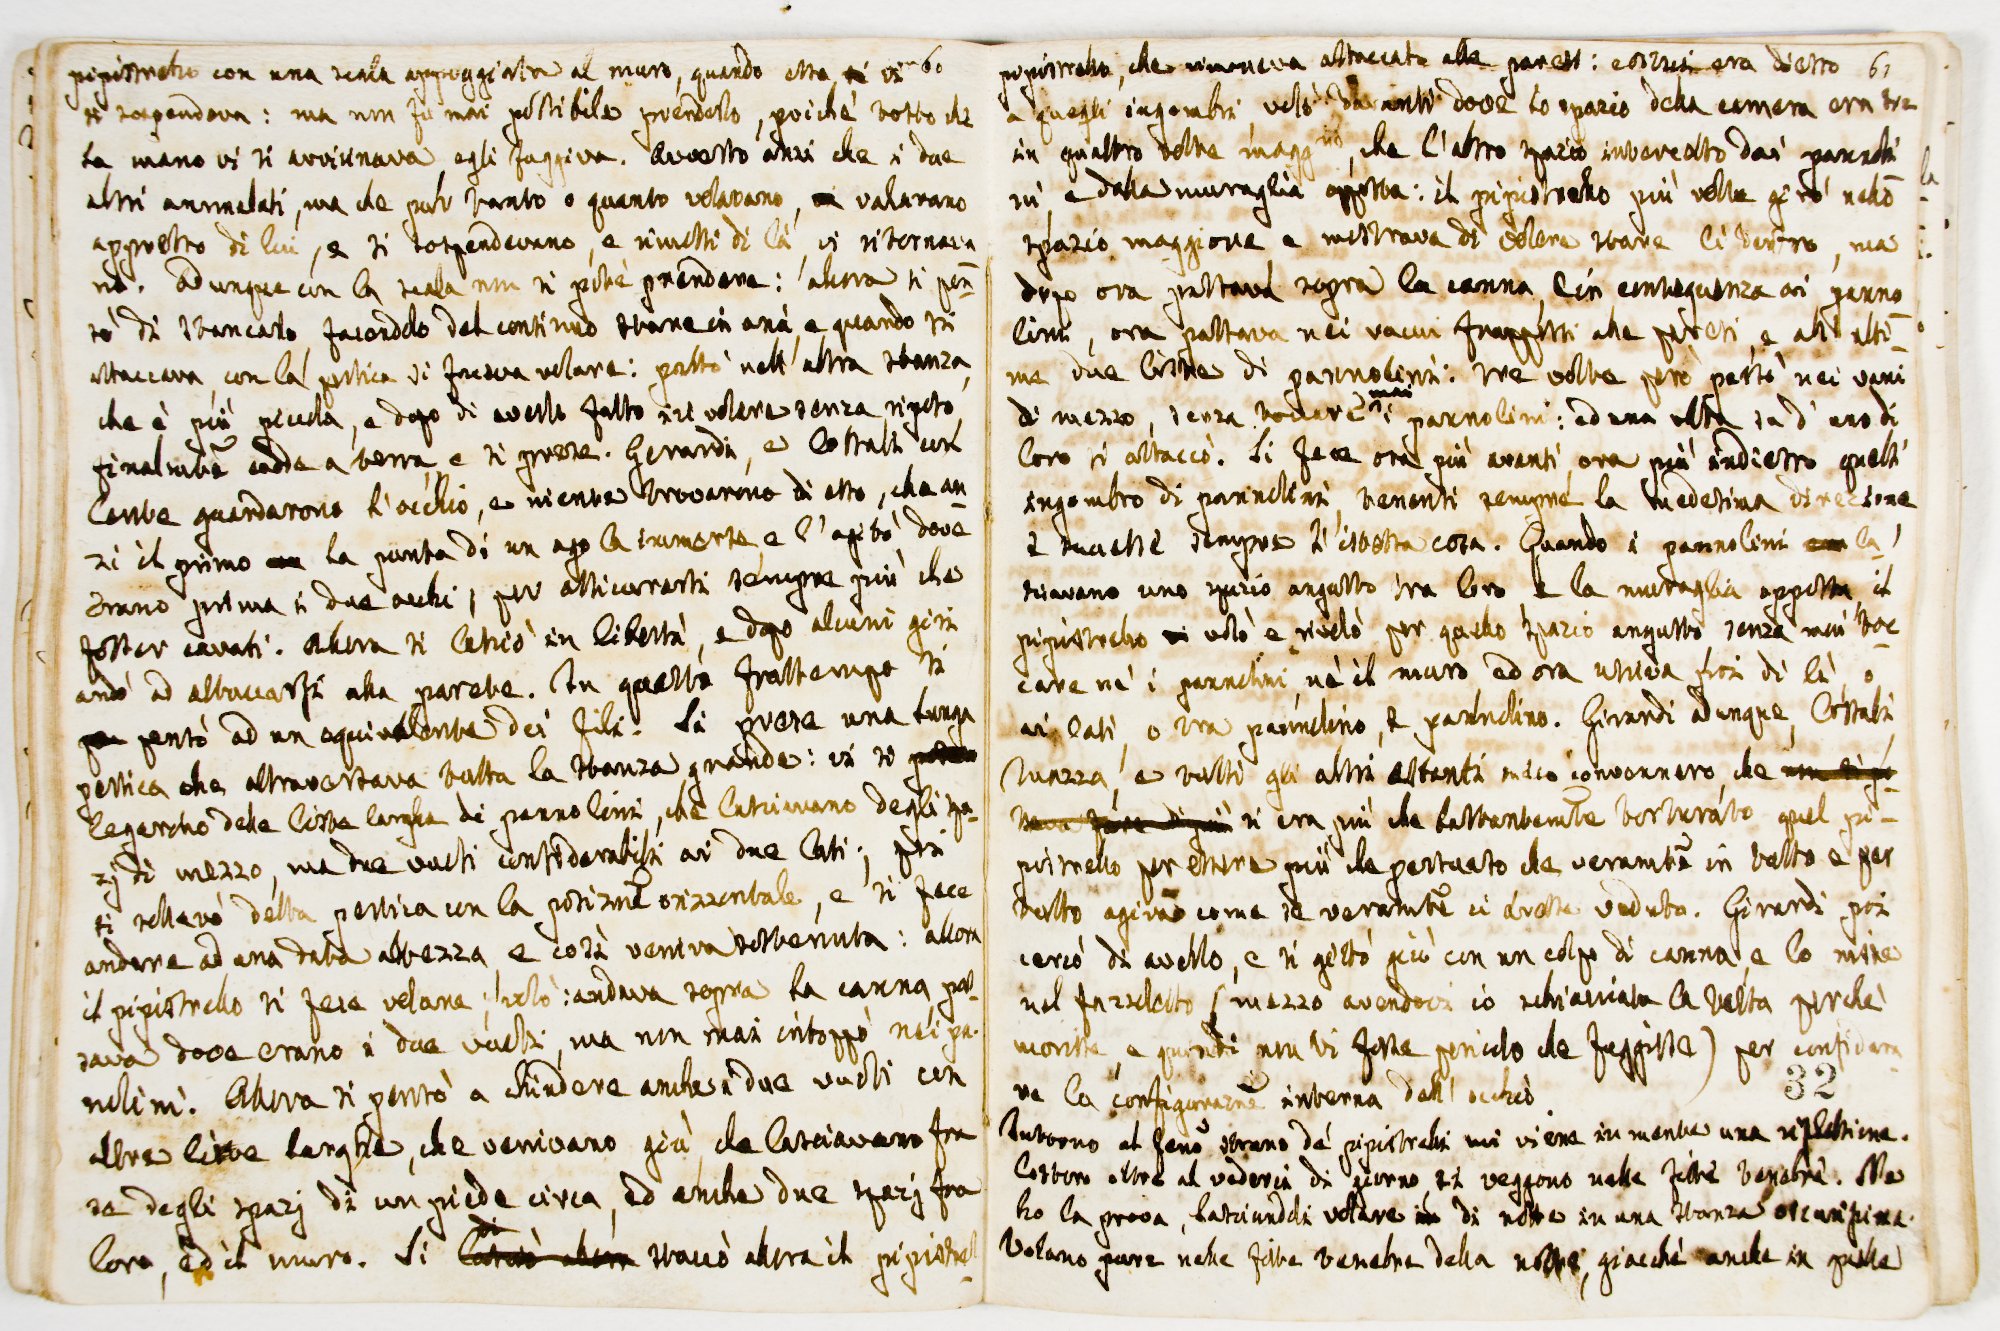 pipistrello con una scala appoggiata al muro, quando esso si vi 60
si sospendeva: ma non fu mai possibile prenderlo, poiché tosto che
la mano vi si avvicinava egli fuggiva. Avverto anzi che i due
altri ammalati, ma che pur tanto o quanto volavano, volavano
appresso di lui, e si sospendevano, e rimessi di là, vi ritornava
no. Adunque con la scala non si poté prendere: allora si pen=
sò di stancarlo facendolo del continuo stare in aria, e quando si
attaccava con la pertica si faceva volare: passò nell'altra stanza,
che è più piccola, e dopo di averlo fatto ivi volare senza riposo,
finalmte cadde a terra, e si prese. Girardi, e Costulli con
lente guardarono l'occhio, e niente trovarono di esso, che an
zi il primo la punta di un ago la immerse, e l'agitò dove
erano prima i due occhi, per assicurarsi sempre più che
fosser cavati. Allora si lasciò in libertà, e dopo alcuni giri
andò ad attaccarsi alla parete. In questo frattempo si
pensò ad un equivalente dei fili. Si prese una lunga
pertica che attraversava tutta la stanza grande: vi si
legarono delle liste larghe di pannolini, che lasciavano degli spa=
zj di mezzo, ma due vuoti considerabili ai due lati; poi
si sollevò detta pertica con la posizne orizzontale, e si fece
andare ad una data altezza, e così veniva sostenuta: allora
il pipistrello si fece volare, volò: andava sopra la canna, pas=
sava dove erano i due vuoti, ma non mai intoppò nei pa=
nolini. Allora si pensò a chiudere anche i due vuoti con
altre liste larghe, che venivano giù, che lasciavano fra
se degli spazj di un piede circa, ed anche due spazj fra
loro, ed il muro. Si staccò allora il pipistrel=
pipistrello, che rimaneva attaccato alle pareti: costui era dietro 61
a quegli ingombri, volò davanti dove lo spazio della camera era tre
in quattro volte magg.re, che l'altro spazio intercetto dai pannoli
ni, e dalla muraglia opposta: il pipistrello più volte girò nello
spazio maggiore e mostrava di volere stare lì dentro, ma
dopo ora passava sopra la canna, in conseguenza ai panno
lini, ora passava nei vacui frapposti alle pareti, e all' ulti=
me due liste di pannolini. Tre volte però passò nei vani
di mezzo, senza toccare mai i pannolini: ed una volta su d'uno di
loro si attaccò. Si fece ora più avanti ora più indietro quell'
ingombro di pannolini, tenenti sempre la medesima direzione
e successe sempre l'istessa cosa. Quando i pannolini la=
sciavano uno spazio angusto tra loro e la muraglia opposta il
pipistrello volò e rivolò per quello spazio angusto senza mai toc
care né i pannolini, né il muro ed ora usciva fuori di là o
ai lati, o tra pannolino, e pannolino. Girardi adunque, Costulli,
, e tutti gli altri astanti meco convennero che
si era più che bastantemte torturato quel pi=
pistrello per essere più che persuaso che veramte in tutto e per
tutto agivano come se veramte ci avesse veduto. Girardi poi
cercò di averlo, e si gettò giù con un colpo di canna, e lo mise
nel fazzoletto (mezzo avendovi io schiacciata la testa perché
morisse, e quindi non vi fosse pericolo che fuggisse) per considera
re la configurazne interna dell'occhio
32
Intorno al feno strano de' pipistrelli mi viene in mente una riflessione.
Costoro oltre al vederci di giorno ci veggono nelle fitte tenebre. Ne
ho la prova, lasciandoli volare di notte in una stanza oscurissima.
Volano pure nelle fitte tenebre della notte, giacché anche in quelle